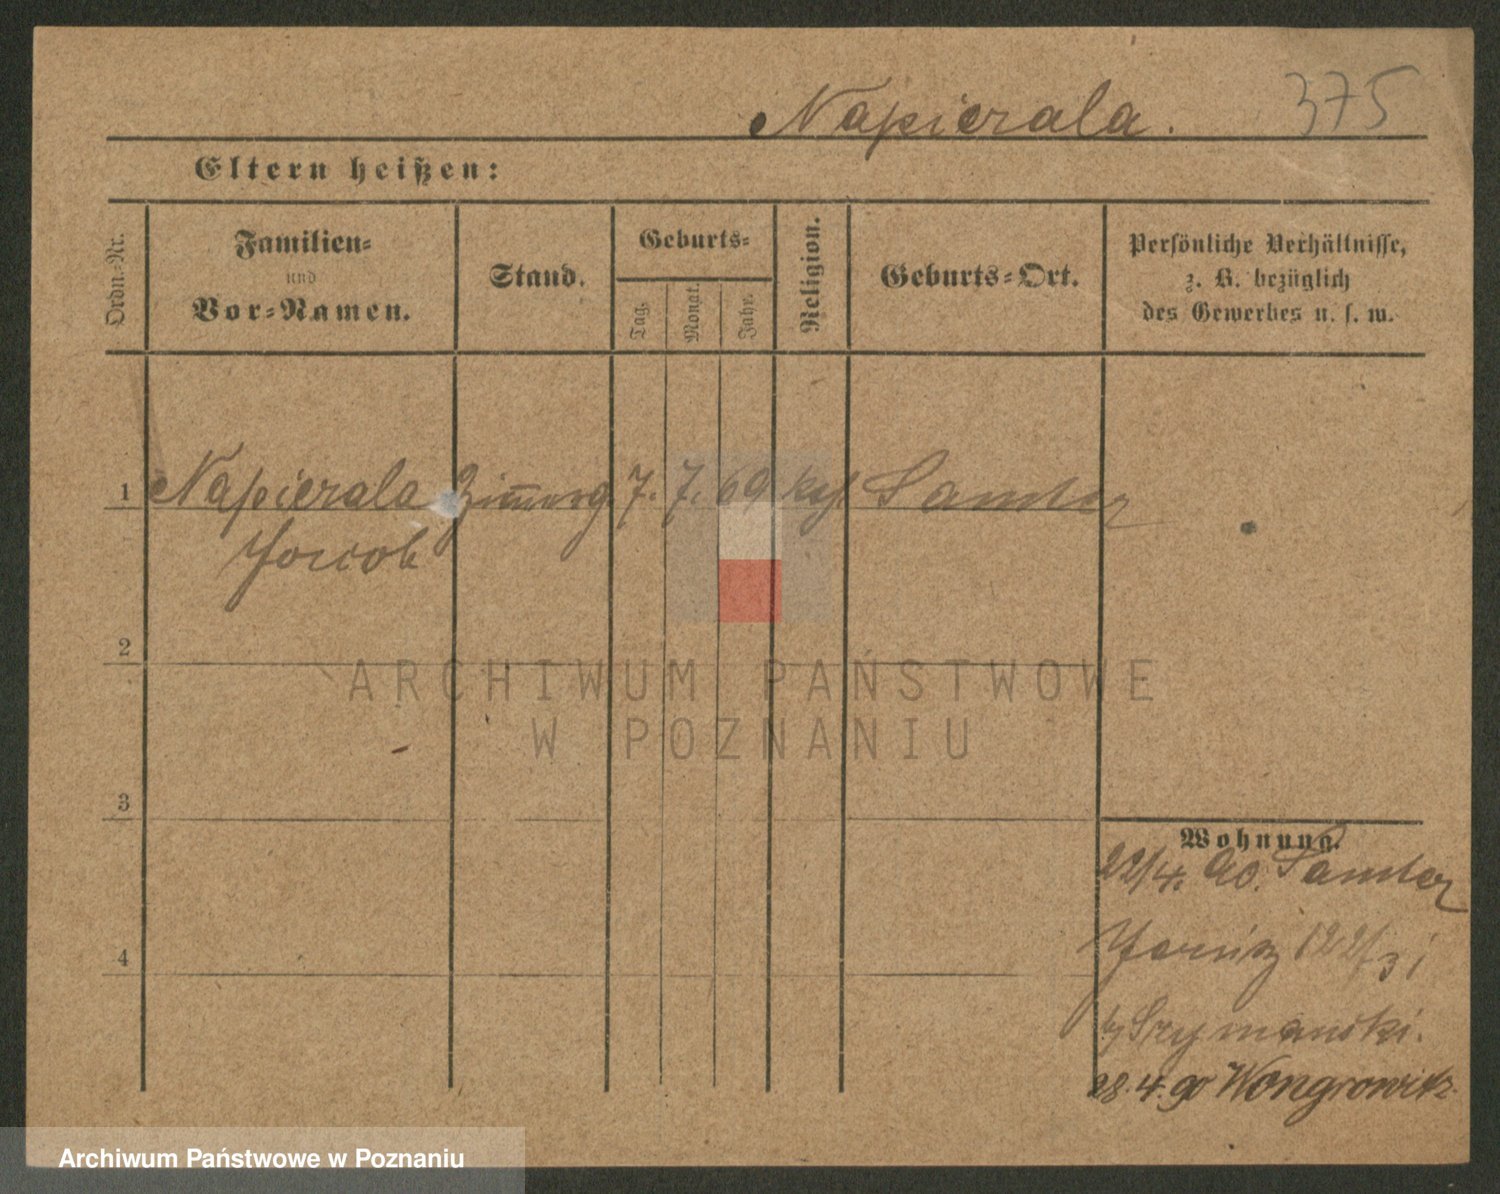 Napierala. 375
Eltern heißen:
Ordn.-Nr.
Familien-
und
Vor-Namen.
Stand.
Geburts-
Tag.
Monat.
Jahr.
Religion.
Geburts-Ort.
Persönliche Verhältnisse,
z. B. bezüglich
des Gewerbes u. s. w.
1 Napierala Zimmerg. 7. 7. 69 kath. Samter
Jacob
2
3
4
Wohnung.
22/4. 90. Samter
Jersitz 122/3 i
b/ Szymanski.
28.4.90 Wongrowitz.
ARCHIWUM PAŃSTWOWE
W POZNANIU
Archiwum Państwowe w Poznaniu